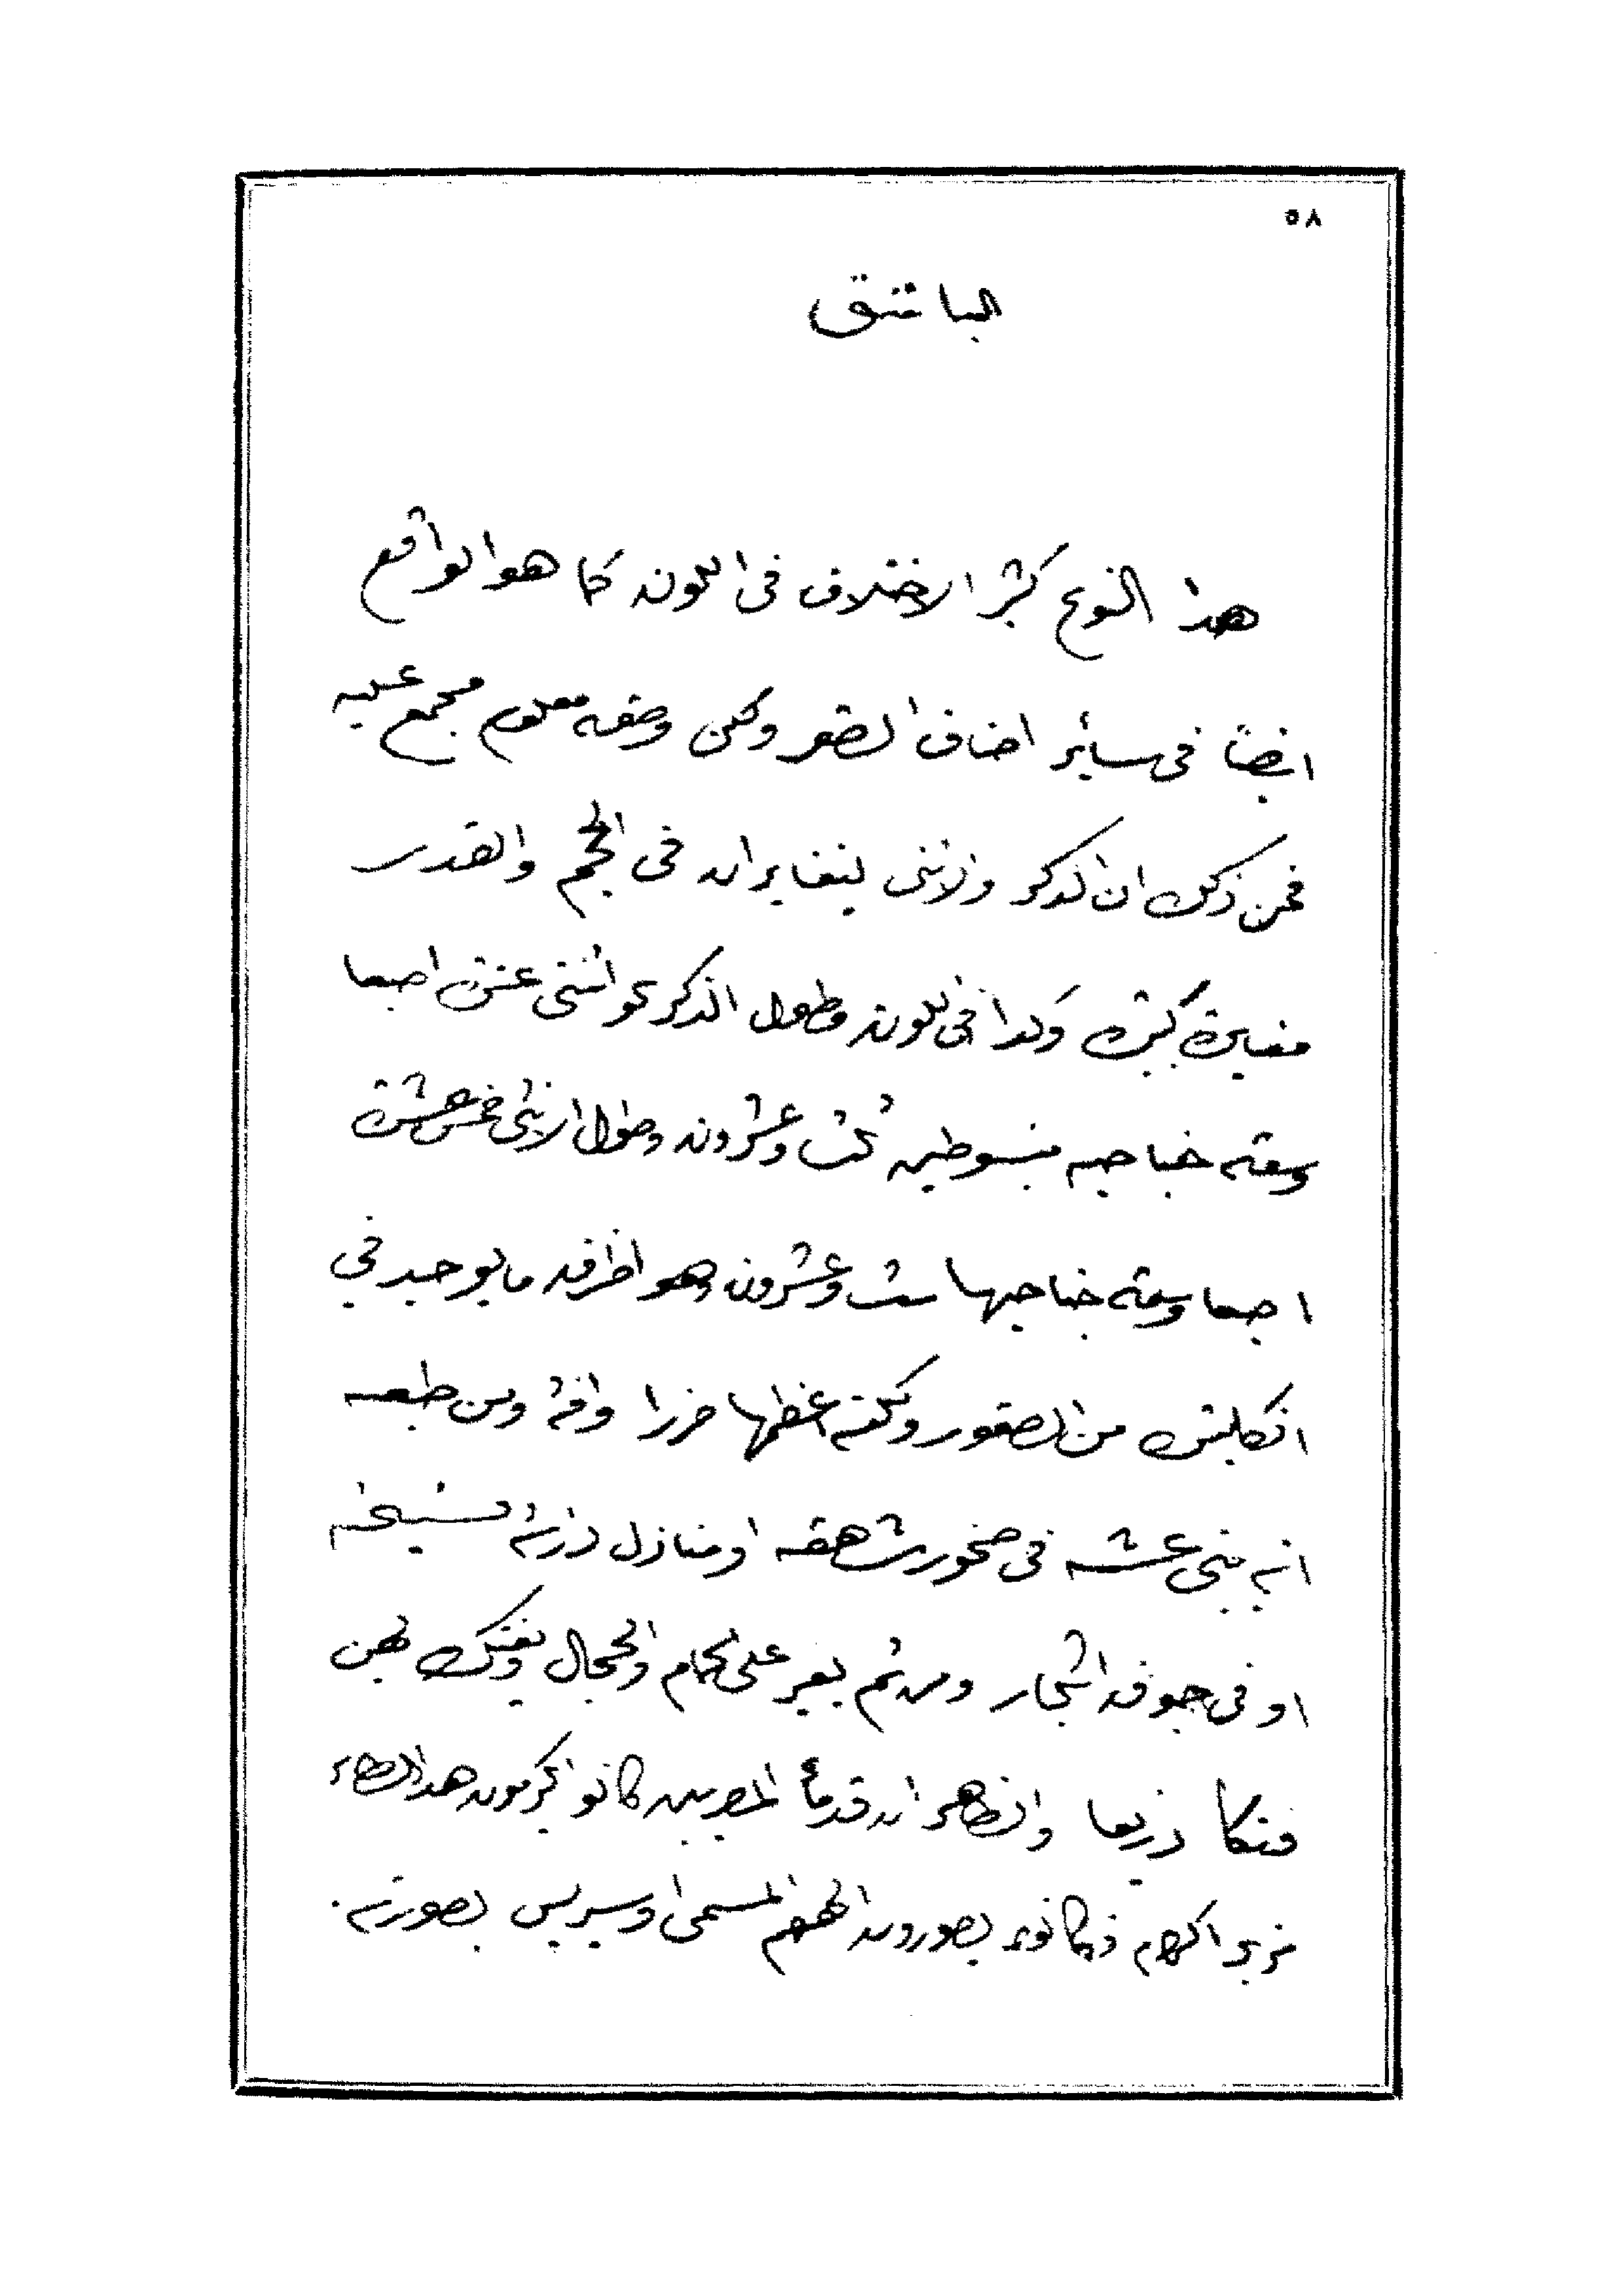 ٥٨
الباشق
هذا النوع كثير الاختلاف في اللون كما هو الواقع
ايضاً في سائر اصناف الصقر ولكن وصفه معلوم مجمع عليه
فمن ذلك ان الذكر والانثى يتغايران في الحجم والقدر
مغايرة كبيرة وكذا في اللون وطول الذكر نحو اثنتى عشرة اصبعا
وسعة جناحيه مبسوطين ثلث وعشرون وطول الانثى خمس عشرة
اصبعا وسعة جناحيها ست وعشرون وهو اظرف ما يوجد في
انكلترة من الصقور ولكنه اعظمها ضررا وافة ومن طبعه
انه يبنى عشه في صخور شاهقة او منازل دارئة
او في جوف اشجار ومن ثم يغير على الحمام والحجال ويفتك بهن
فتكا ذريعا والظاهر ان قدماء المصريين كانوا يكرمون هذا الطائر
مزيد اكرام فكانوا يصورون الههم المسمى اوسيريس بصورته.